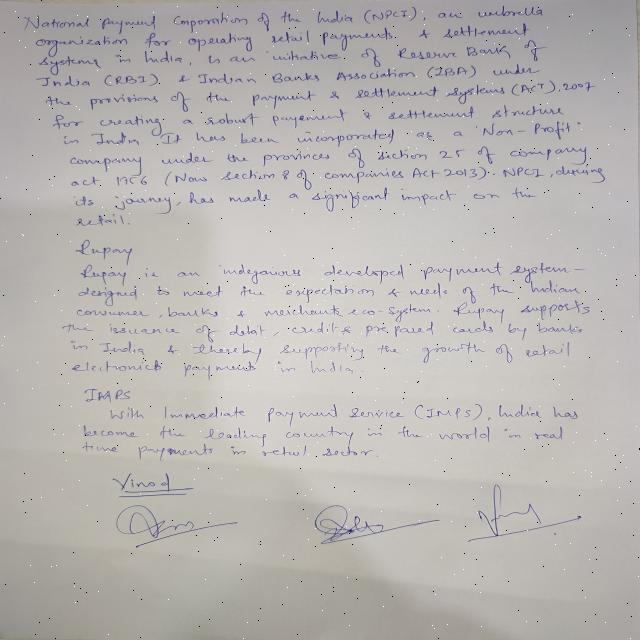 National Payment Corporation of the India (NPCI), an umbrella
organization for operating retail payments & settlement
systems in India, is an initiative of Reserve Bank of
India (RBI) & Indian Banks Association (IBA) under
the provisions of the payment & settlement systems (ACT), 2007
for creating a robust payement & settlement structure
in India. It has been incorporated as a "Non-Profit"
company under the provinces of Section 25 of company
act 1956 (Now section 8 of companies Act 2013). NPCI, during
its journey, has made a significant impact on the
retail.
Rupay
Rupay is an indeganious developed payment system -
designed to meet the expectation & needs of the Indian
consumer, banks & merchants eco-system. Rupay supports
the issuance of debit, credit & prepared cards by banks
in India & thereby supporting the growth of retail
electronics payments in India.
IMPS
With Immediate Payment Service (IMPS), India has
become the leading country in the world in real
time payments in retail sector.
Vinod